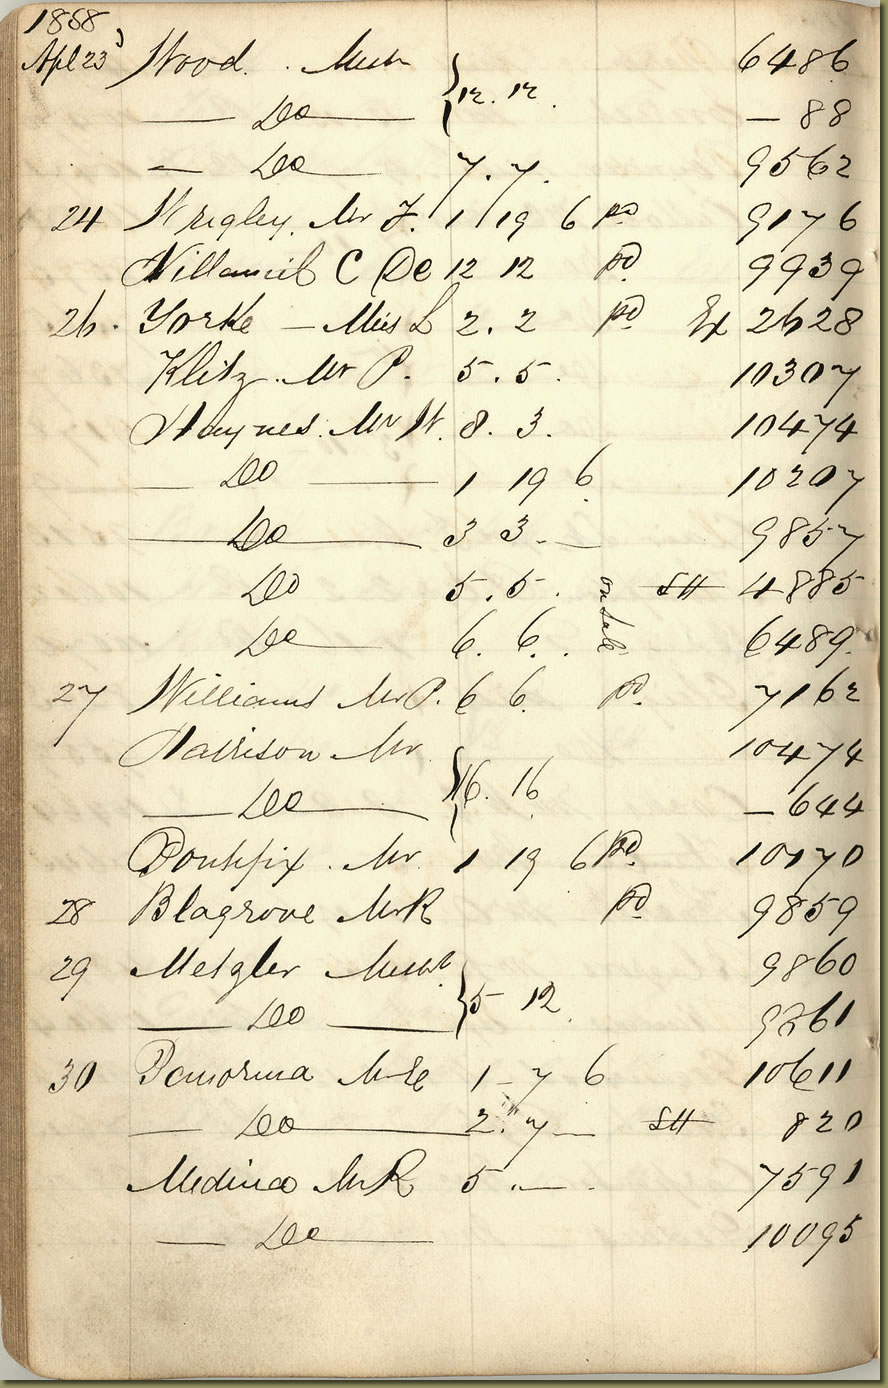 1858
Apl 23 Wood. . Messrs } 12. 12. 6486
— Do — — 88
— Do — 7. 7. 9562
24 Wrigley. Mr J. 1 19 6 pd 9176
Villamil C De 12 12 pd 9939
26. Yorke — Miss L 2. 2 pd Ex 2628
Klitz. Mr P. 5. 5. 10307
Haynes. Mr W. 8. 3. 10474
— Do — 1 19 6 10207
— Do — 3 3. — 9857
Do 5. 5. on sale SH 4885
Do — 6. 6. . 6489.
27 Williams Mr P. 6 6. pd 7162
Harrison Mr } 16. 16 10474
— Do — — 644
Pontifix. Mr 1 19 6 pd 10170
28 Blagrove Mr R pd 9859
29 Metzler Messrs } 5 12. 9860
— Do — 9261
30 Panormo Mr E 1 - 7 6 10611
— Do — 2. 7 — SH 820
Medina Mr R 5 . — . 7591
— Do — 10095